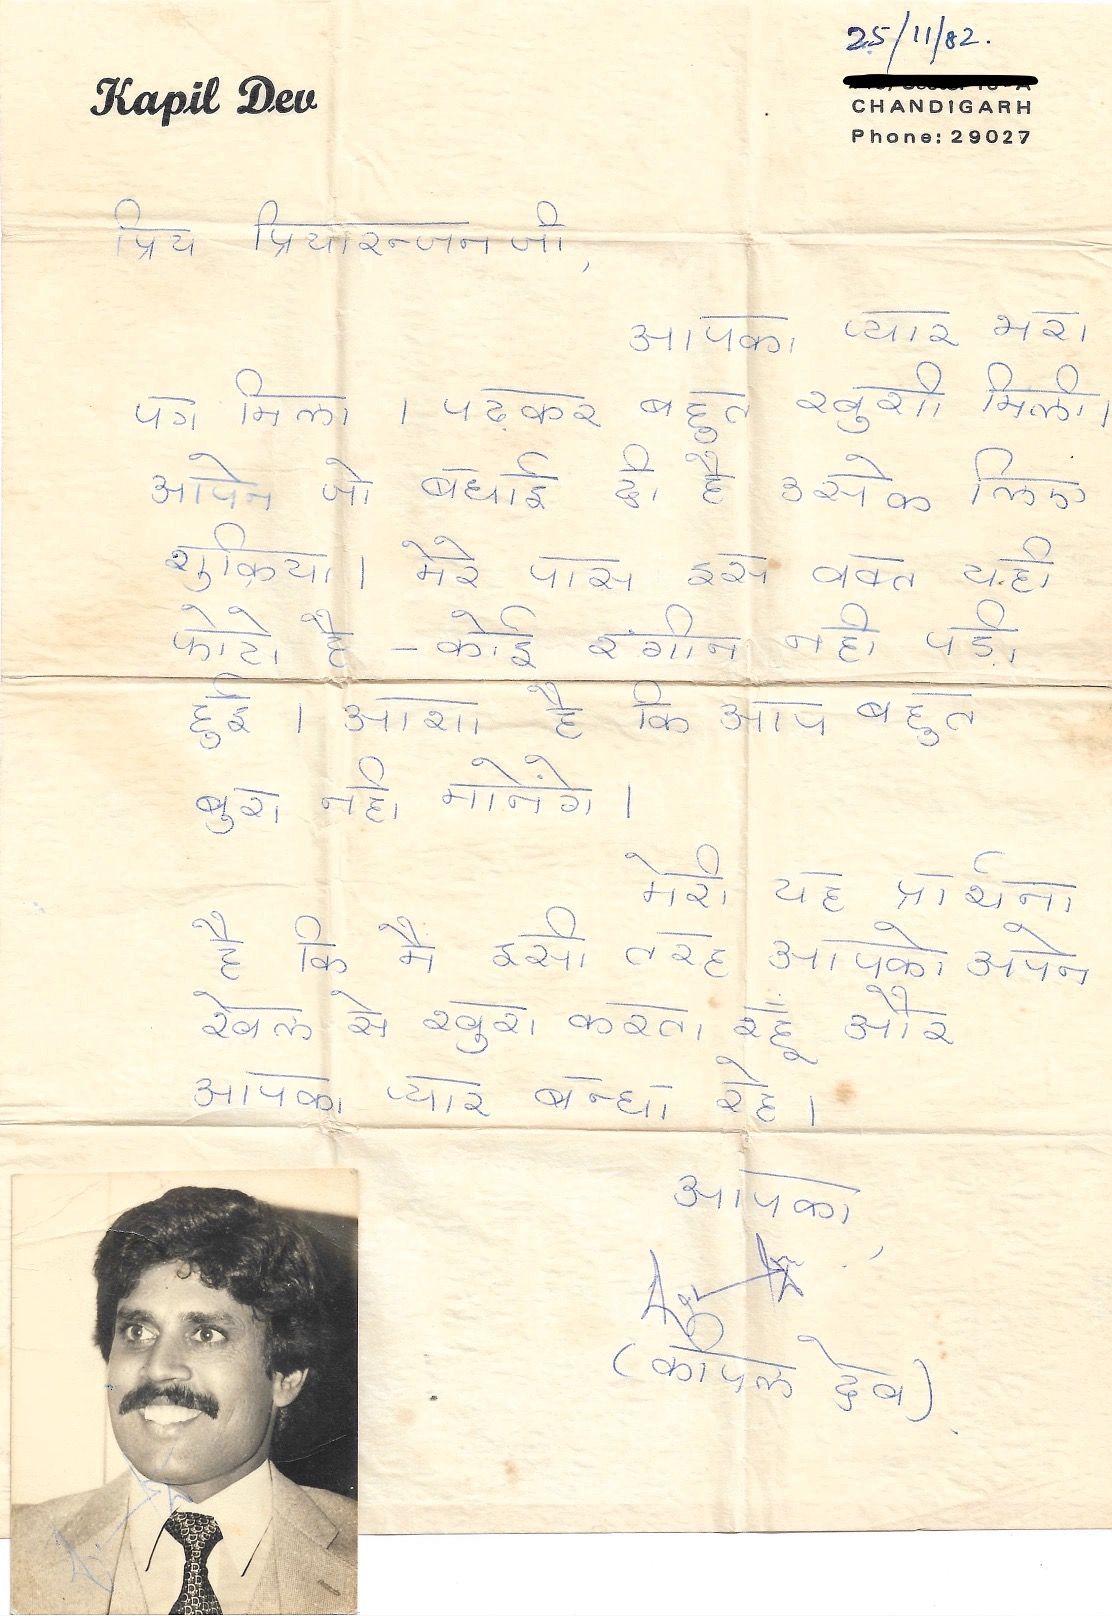 25/11/82.
Kapil Dev
CHANDIGARH
Phone: 29027
प्रिय प्रियारन्जन जी,
आपका प्यार भरा
पग मिला । पढ़कर बहुत खुशी मिली।
आपने जो बधाई दी है उसके लिए
शुक्रिया। मेरे पास इस वक्त यही
फोटो है - कोई रंगीन नही पड़ी
हुई । आशा है कि आप बहुत
बुरा नही मानेंगे ।
मेरी यह प्रार्थना
है कि मै इसी तरह आपको अपने
खेल से खुश करता रहूं और
आपका प्यार बन्धा रहे ।
आपका,
(कपिल देव)